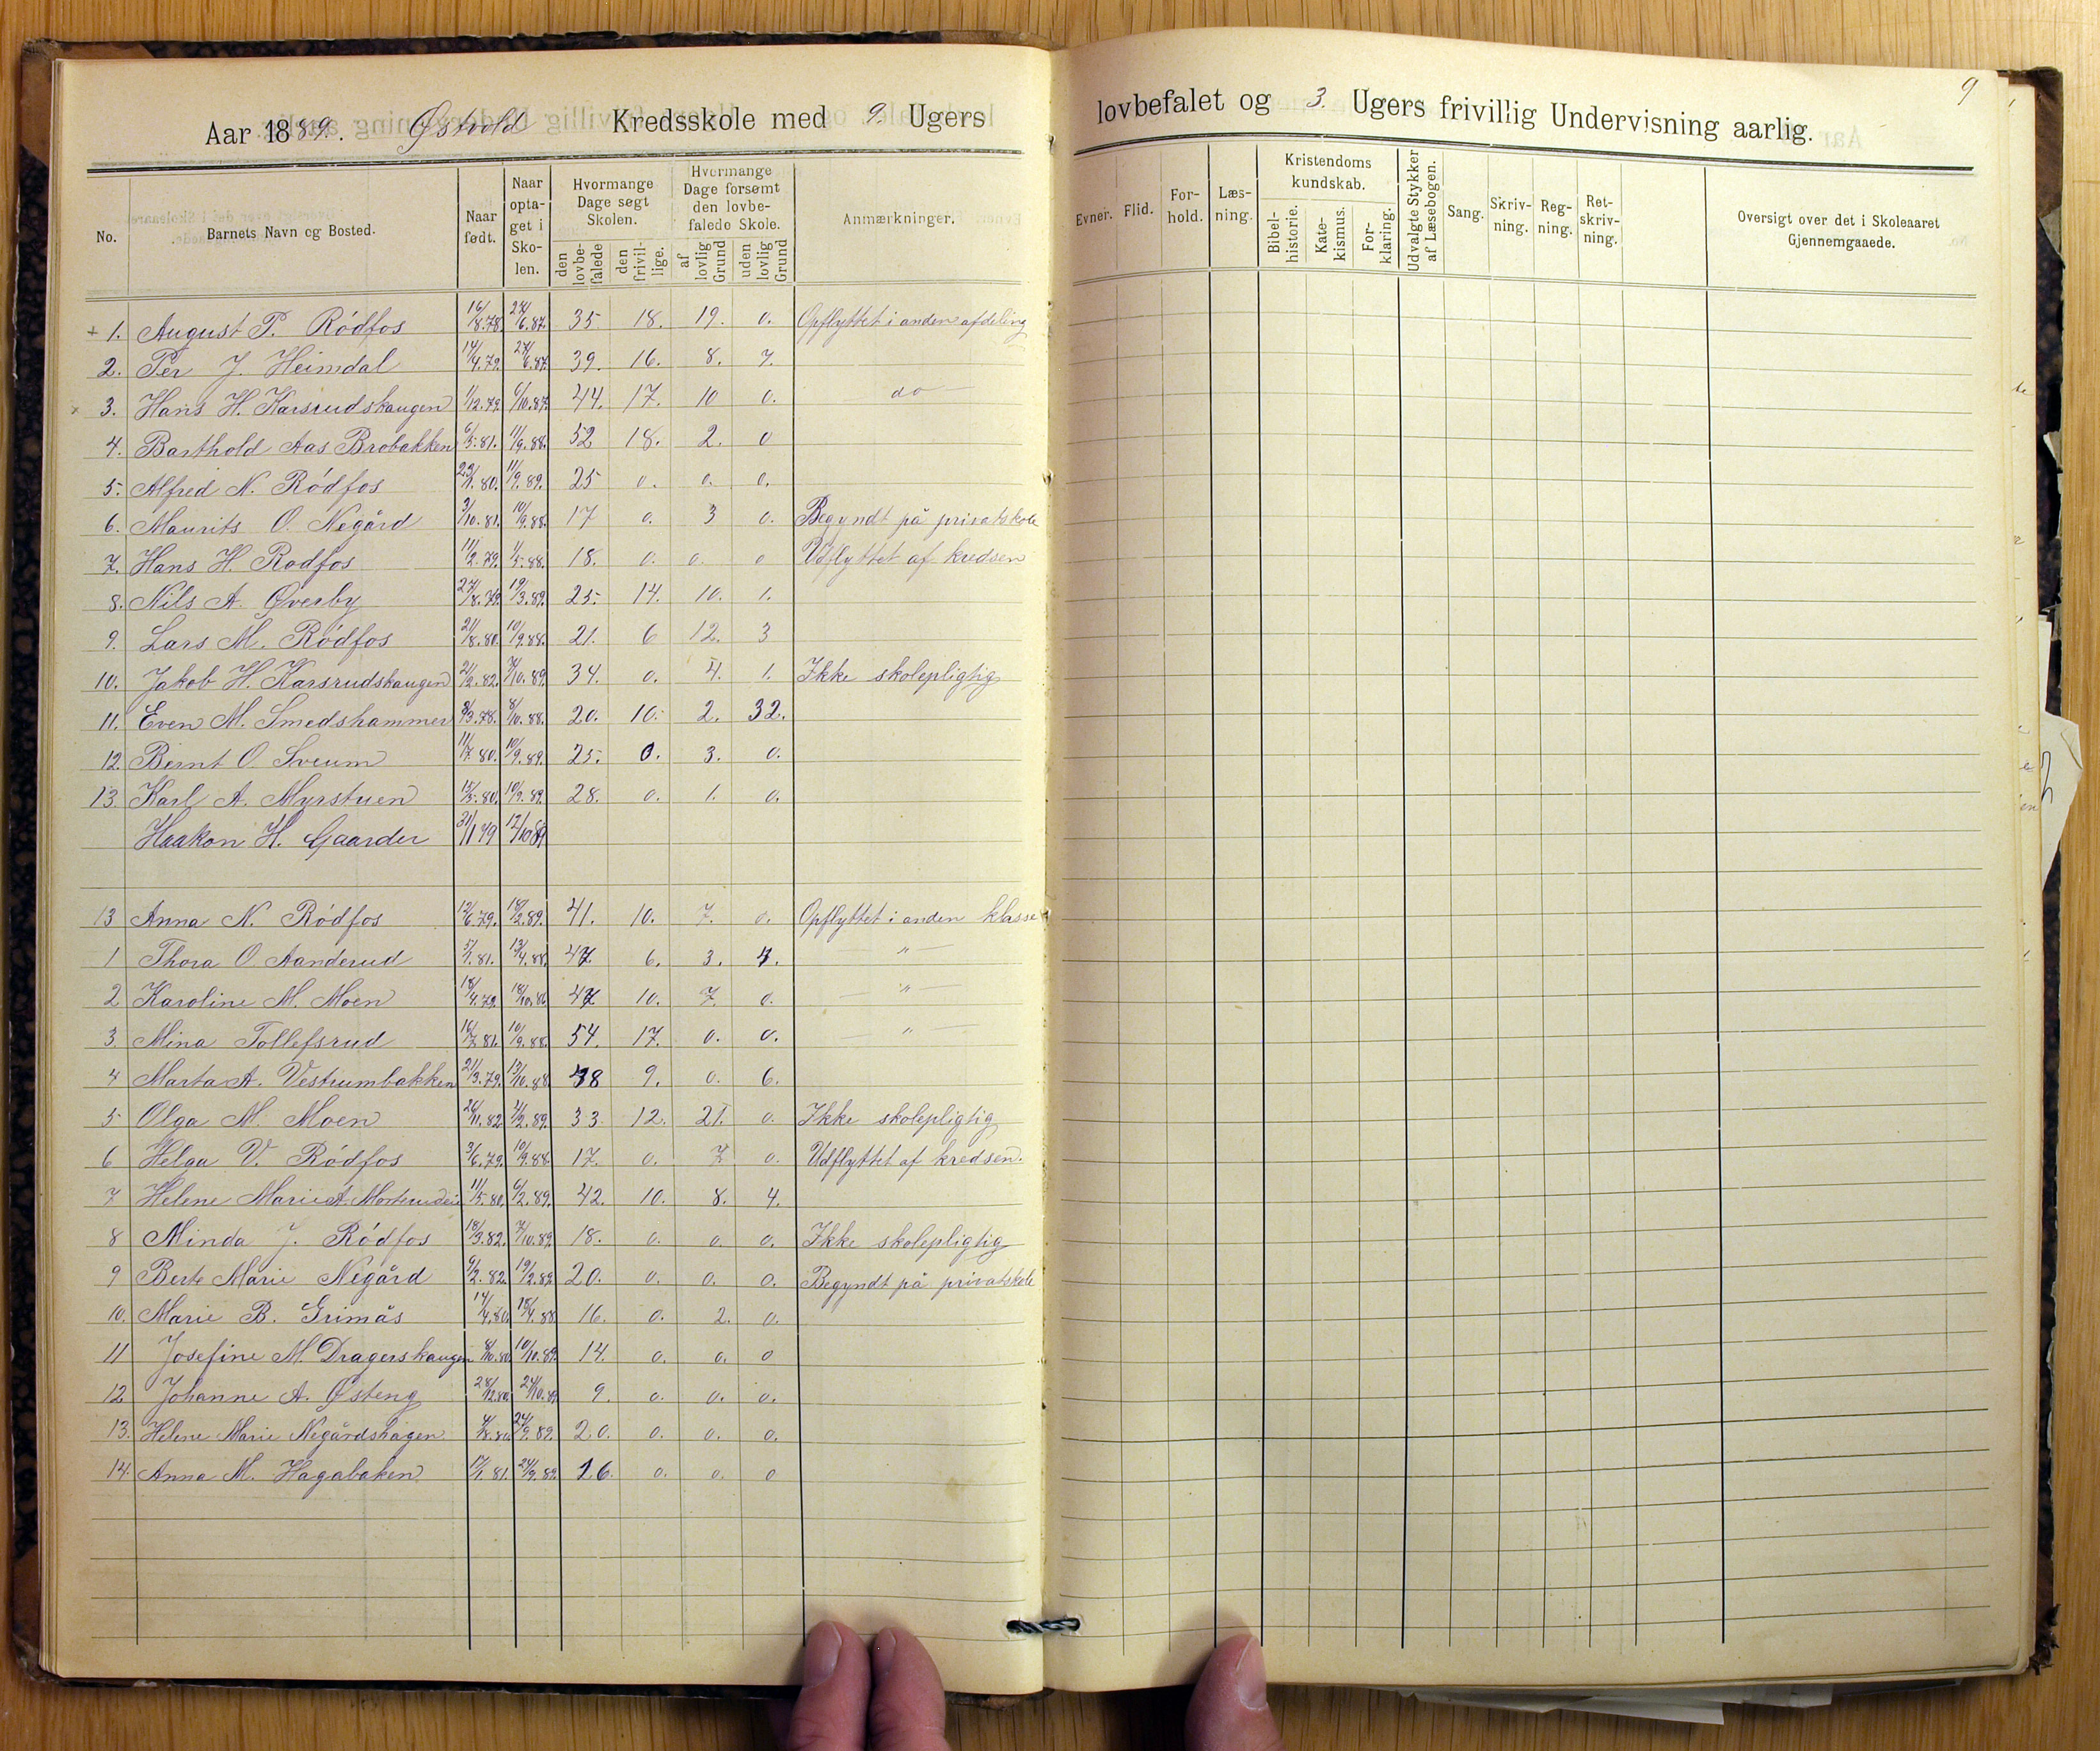 Aar 1889. Østvold Kredsskole med 9. Ugers
No.
Barnets Navn og Bosted.
Naar født.
Naar optaget i Skolen.
Hvormange Dage søgt Skolen.
den lovbefalede
den frivillige.
Hvormange Dage forsømt den lovbefalede Skole.
af lovlig Grund
uden lovlig Grund
Anmærkninger.
1. August P. Rödfos 16/8.78. 24/6.87. 35 18. 19. 0. Opflyttet i anden afdeling
2. Per J. Heimdal 14/4.79. 24/6.87. 39. 16. 8. 7.
3. Hans H. Karsrudskaugen 1/12.79. 6/10.87. 44. 17. 10 0. do
4. Barthold Aas Brobakken 6/5.81. 11/9.88. 52 18. 2. 0
5. Alfred N. Rödfos 23/1.80. 11/9.89. 25 0. 0. 0.
6. Maurits O. Negård 3/10.81. 10/9.88. 17 0. 3 0. Begyndt på privatskole
7. Hans H. Rodfos 11/2.79. 1/5.88. 18. 0. 0. 0 Udflyttet af kredsen
8. Nils A. Øverby 27/8.79. 19/3.89. 25. 14. 10. 1.
9. Lars M. Rödfos 21/8.80. 10/9.88. 21. 6 12. 3
10. Jakob H. Karsrudskaugen 21/2.82. 7/10.89. 34. 0. 4. 1. Ikke skolepligtig
11. Even M. Smedshammer 3/3.78. 8/10.88. 20. 10. 2. 32.
12. Bernt O. Sveum 11/7.80. 10/9.89. 25. 0. 3. 0.
13. Karl A. Myrstuen 15/5.80. 10/9.89. 28. 0. 1. 0.
Haakon H. Gaarder 31/1 79 12/10 89
13 Anna N. Rödfos 12/6.79. 18/2.89. 41. 10. 7. 0. Opflyttet i anden klasse
1 Thora O. Aanderud 5/1.81. 13/4.88. 47. 6. 3. 4. "
2 Karoline M. Moen 18/4.79. 18/10.86. 47 10. 7. 0. "
3. Mina Tollefsrud 16/7.81. 10/9.88. 54. 17. 0. 0. "
4 Marta A. Vestrumbakken 21/3.79. 13/10.88. 38 9. 0. 6.
5 Olga M. Moen 26/11.82. 4/2.89. 33. 12. 21. 0. Ikke skolepligtig
6 Helga V. Rödfos 3/6.79. 10/9.88. 17. 0. 7 0. Udflyttet af kredsen.
7 Helene Marie A. 11/5.80. 6/2.89. 42. 10. 8. 4.
8 Minda J. Rödfos 18/3.82. 7/10.89. 18. 0. 0. 0. Ikke skolepligtig
9 Berte Marie Negård 9/2.82. 19/9.89. 20. 0. 0. 0. Begyndt på privatskole
10. Marie B. Grimås 14/4.80. 18/4.88. 16. 0. 2. 0.
11 Josefine M. Dragerskaugen 8/10.80. 10/10.89. 14. 0. 0. 0
12 Johanne A. Østeng 28/12.80. 24/10.89. 9. 0. 0. 0.
13. Helene Marie Negårdshagen 4/8.80. 24/9.89. 20. 0. 0. 0.
14. Anna M. Hagabaken 17/1.81. 24/9.89. 16. 0. 0. 0
9
lovbefalet og 3. Ugers frivillig Undervisning aarlig.
Evner.
Flid.
Forhold.
Læsning.
Kristendoms kundskab.
Bibelhistorie.
Katekismus.
Forklaring.
Udvalgte Stykker af Læsebogen.
Sang.
Skrivning.
Regning.
Retskrivning.
Oversigt over det i Skoleaaret Gjennemgaaede.